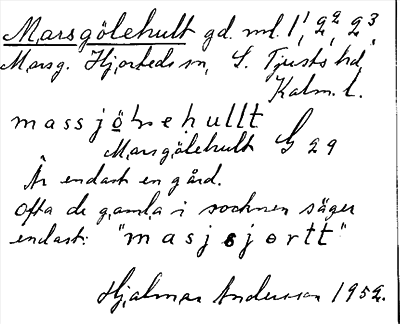 Marsgölehult gd. ml. 1¹, 2², 2³
Marsg. Hjorteds sn, S. Tjusts hd,
Kalm. l.
massjö̱lehullt
Marsgölehult G 29
Är endast en gård.
Ofta de gamla i socknen säger
endast: "masjsjortt"
Hjalmar Andersson 1952.